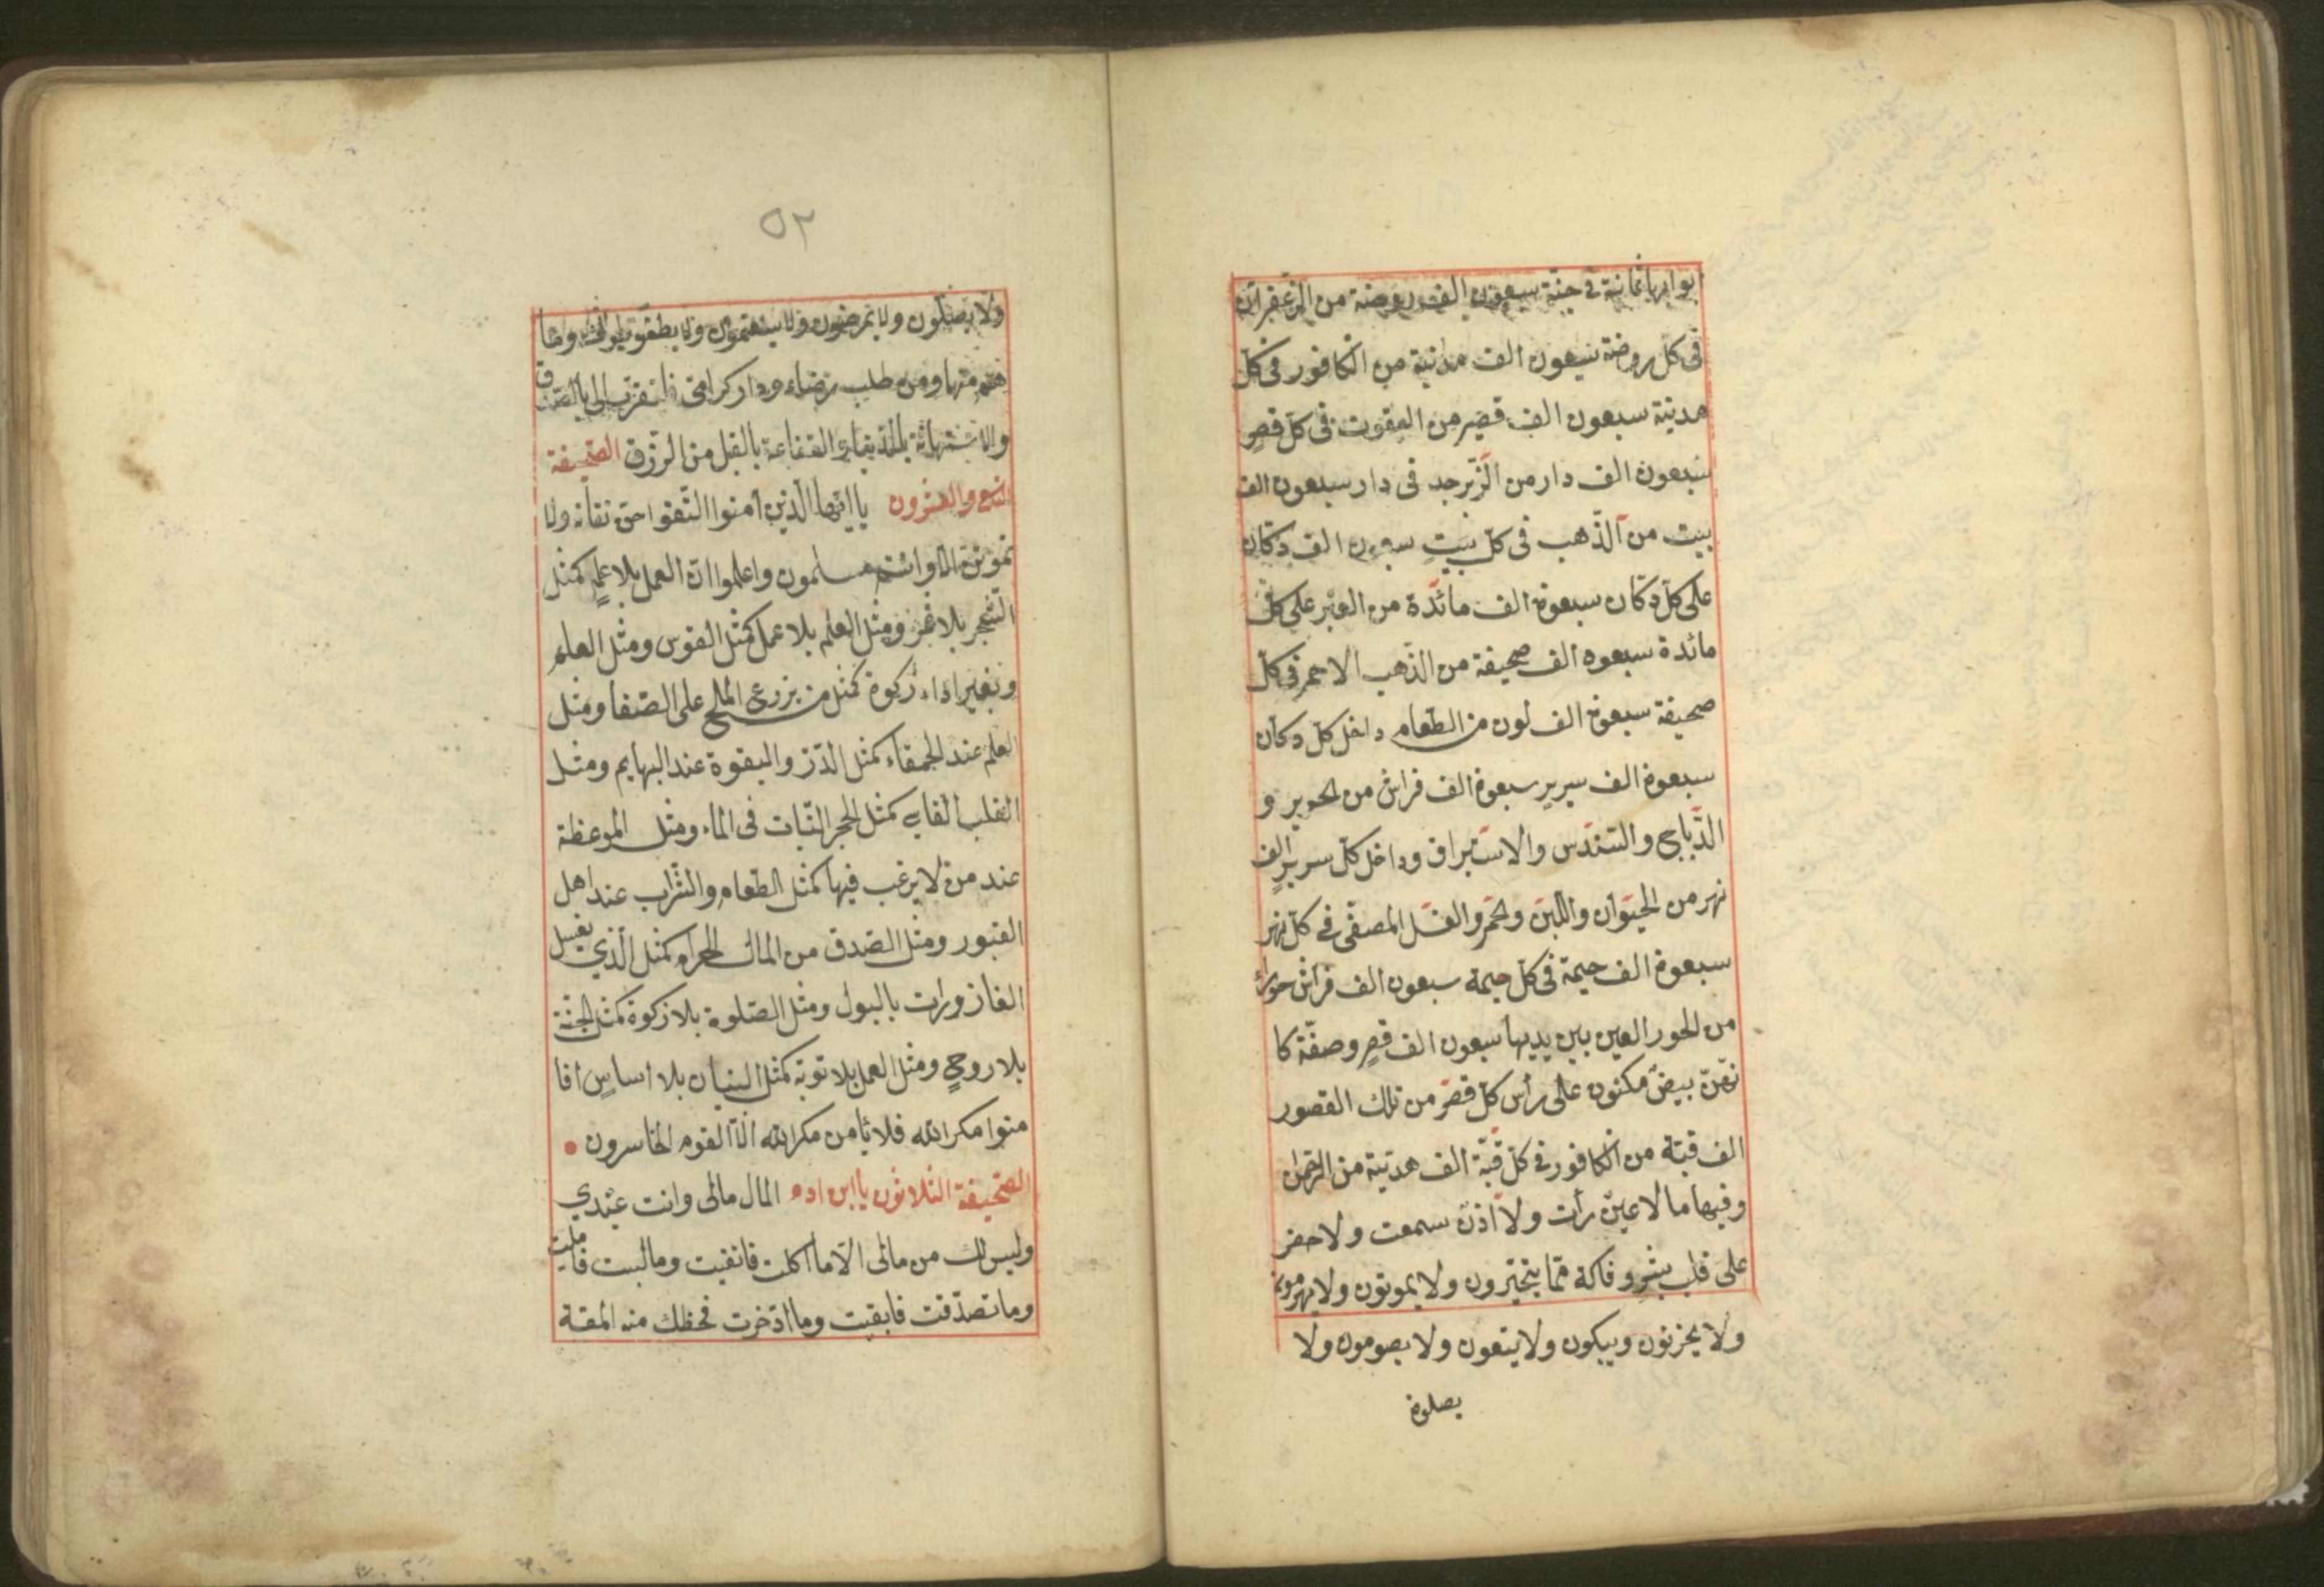 بوابها ثمانية فى جنّة سبعون الف روضة من الزعفران
فى كل روضة سبعون الف مدنية من الكافور فى كل
مدينة سبعون الف قصر من اليقوت فى كل قصر
سبعون الف دار من الزّبرجد فى دار سبعون الف
بيت من الذّهب فى كل بيت سبعون الف دكان
على كل دكان سبعون الف مائدة من العنبر على كل
مائدة سبعون الف صحيفة من الذّهب الاحمر فى كل
صحيفة سبعون الف لون من الطّعام داخل كل دكان
سبعون الف سرير سبعون الف فراش من الحرير و
الدّباج والسّندس والاستبراق وداخل كل سرير الف
نهر من الحيوان واللّبن والخمر والعسل المصفّى فى كل نهر
سبعون الف خيمة فى كل خيمة سبعون الف فراش حوراء
من الحور العين بين يديها سبعون الف قصر وصفّة كا
نهّنّ بيض مكنون على رأس كل قصر من تلك القصور
الف قبّة من الكافور فى كل قبّة الف هديّة من الرّحمن
وفيها ما لا عين رأت ولا اذن سمعت ولا حفر
على قلب بشر و فاكة ممّا يتخيّرون ولا يموتون ولا يهرمون
ولا يحزنون ويبكون ولا يتعون ولا يصومون ولا
يصلون
٥٢
ولا يضحكون ولا يمرضون ولا وما
هم منها ومن طلب رضاء ودار كرامتى فليتقرّب الىّ بالصّدق
والاستهانة بالدّنيا والقناعة بالقيل من الرّزق الصّحيفة
التاسع والعشرون يا ايّها الّذين آمنوا اتّقوا حق تقاته ولا
تموتنّ الاّ وانتم مسلمون واعلموا انّ العمل بلا علم كمثل
الشّجر بلا ثمر ومثل العلم بلا عمل كمثل القوس ومثل العلم
وبغير اداء زكوة كمثل من يزرع الملح على الصّفا ومثل
العلم عند الحمقاء كمثل الدّرّ واليقوة عند البهايم ومثل
القلب القاسى كمثل الحجر الثّبات فى الماء ومثل الموعظة
عند من لا يرغب فيها كمثل الطّعام والشّراب عند اهل
القبور ومثل الصّدق من المال الحرام كمثل الّذي يغسل
الغازورات بالبول ومثل الصّلوة بلا زكوة كمثل الجثّة
بلا روح ومثل العمل بلا توبة كمثل البنيان بلا اساس افا
منوا مكر اللّه فلا يأمن مكر اللّه الاّ القوم الخاسرون
الصّحيفة الثلاثون يا ابن ادم المال مالى وانت عبدي
وليس لك من مالى الاّ ما اكلت فانفيت وما لبست فابليت
وما تصدّقت فابقيت وما ادّخرت فحظك منه المقة